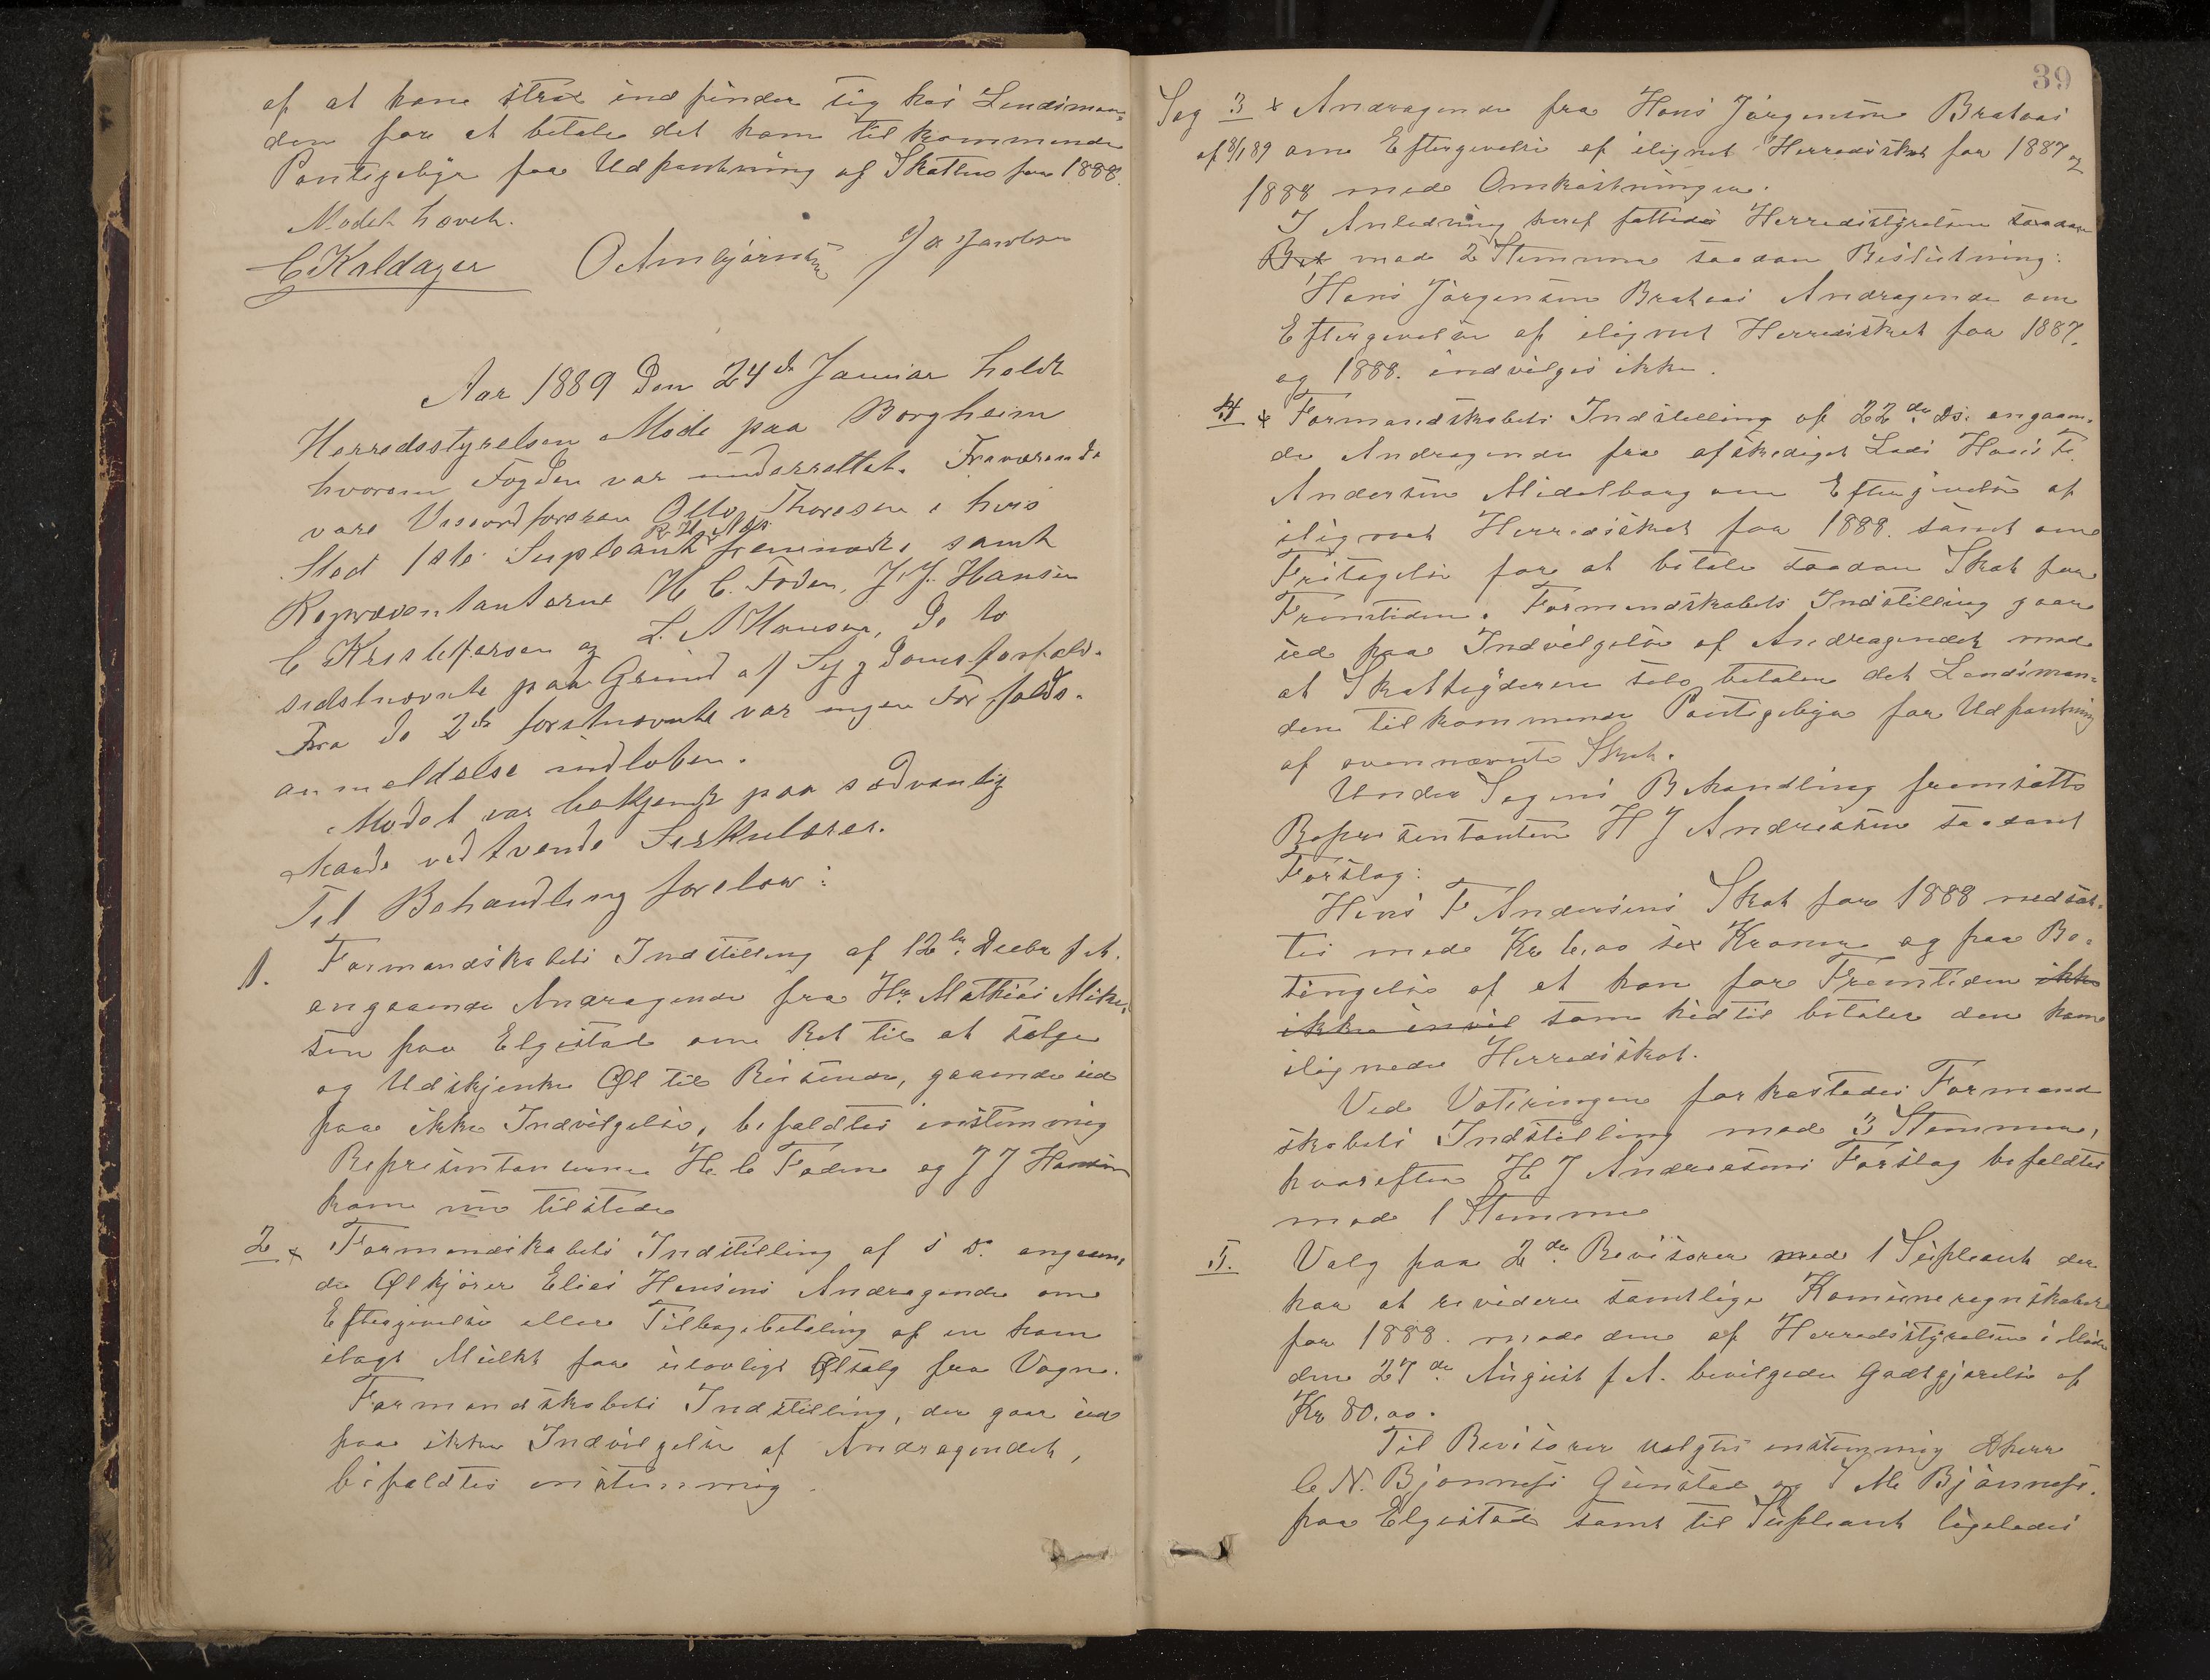 af at han strax indfinder sig hos Lendsman-
den for at betale det ham tilkommende
Pantegebyr for Udpantning af Skatten for 1888.
Mødet hævet.
C Kaldager O Ambjørnsen J A Jacobsen
Aar 1889 Den 24de Januar holdt
Herredsstyrelsen Møde paa Borgheim
hvorom Fogden var underrettet. Fraværende
vare Viseordføreren Otto Thoresen i hvis
Sted 1ste Supleant fremmødte samt
Repræsentanterne H C. Foden, J. J. Hansen
C Kristoffersen og L. A Hansen, De to
sidstnævnte paa Grund af Sygdomsforfald.
Fra de 2de førstnævnte var ingen Forfalds-
anmeldelse indløben.
Mødet var bekjendt paa sædvanlig
Maade ved tvende Sirkulærer.
Til Behandling forelaa:
1. Formandskabets Indstilling af 12te Decbr f. A.
angaaende Andragende fra Hr. Mathias Mikel-
sen paa Elgestad om Ret til at sælge
og Udskjenke Øl til Reisende, gaaende ud
paa ikke Indvilgelse, bifaldtes enstemmig
Represintanterne H. C Foden og J J Hansen
kom nu tilstede
2 x Formandskabets Indstilling af s D. angaaen-
de Ølkjører Elias Hansens Andragende om
Eftergivelse eller Tilbagebetaling af en ham
ilagt Mulkt for ulovligt Ølsalg fra Vogn.
Formandskabets Indstilling, der gaar ud
paa ikke Indvilgelse af Andragendet,
bifaldtes enstemmig.
39
Sag 3 x Andragende fra Hans Jørgensen Brataas
af 8/1 89 om Eftergivelse af ilignet Herredsskat for 1887 og
1888 med Omkostninger.
I Anledning heraf fattede Herredsstyrelsen saadan
Bes mod 2 Stemmer saadan Beslutning:
Hans Jørgensen Brataas Andragende om
Eftergivelse af ilignet Herredsskat for 1887.
og 1888. indvilges ikke.
4 x Formandskabets Indstilling af 22de ds. angaaen-
de Andragende fra afskediget Lods Hans F.
Andersen Midelborg om Eftergivelse af
ilignet Herredsskat for 1888. samt om
Fritagelse for at betale saadan Skat for
Fremtiden. Formandskabets Indstilling gaar
ud paa Indvilgelse af Andragendet mod
at Skatteyderen selv betaler det Lendsman-
den tilkommende Pantegebyr for Udpantning
af ovennævnte Skat.
Under Sagens Behandling fremsatte
Represintanten H J Andresen saadant
Forslag:
Hans F Andersens Skat for 1888 nedsæt-
tes med Kr 6,00 sex Kroner og paa Be-
tingelse af at han for Fremtiden ikke
ikke som hidtil betaler den ham
ilignede Herredsskat.
Ved Voteringen forkastedes Formand
skabets Indstilling mod 3 Stemmer,
hvorefter H J Andresens Forslag bifaldtes
mod 1 Stemme
5. Valg paa 2de Revisorer med 1 Supleant der
har at revidere samtlige Komuneregnskaber
for 1888. mod den af Herredsstyrelsen i Møde
den 27de August f A. bevilgede Godtgjørelse af
Kr 80.00.
Til Revisorer valgtes enstemmig Dherr
C N. Bjønnes Gunstad og M Bjønnes.
paa Elgestad samt til Supleant ligeledes